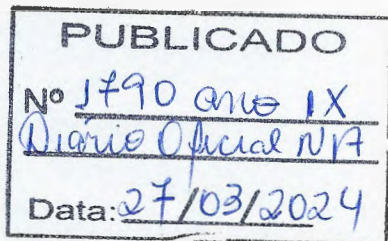 PUBLICADO
Nº 1790 ano IX
Diário Oficial NA
Data: 27/03/2024